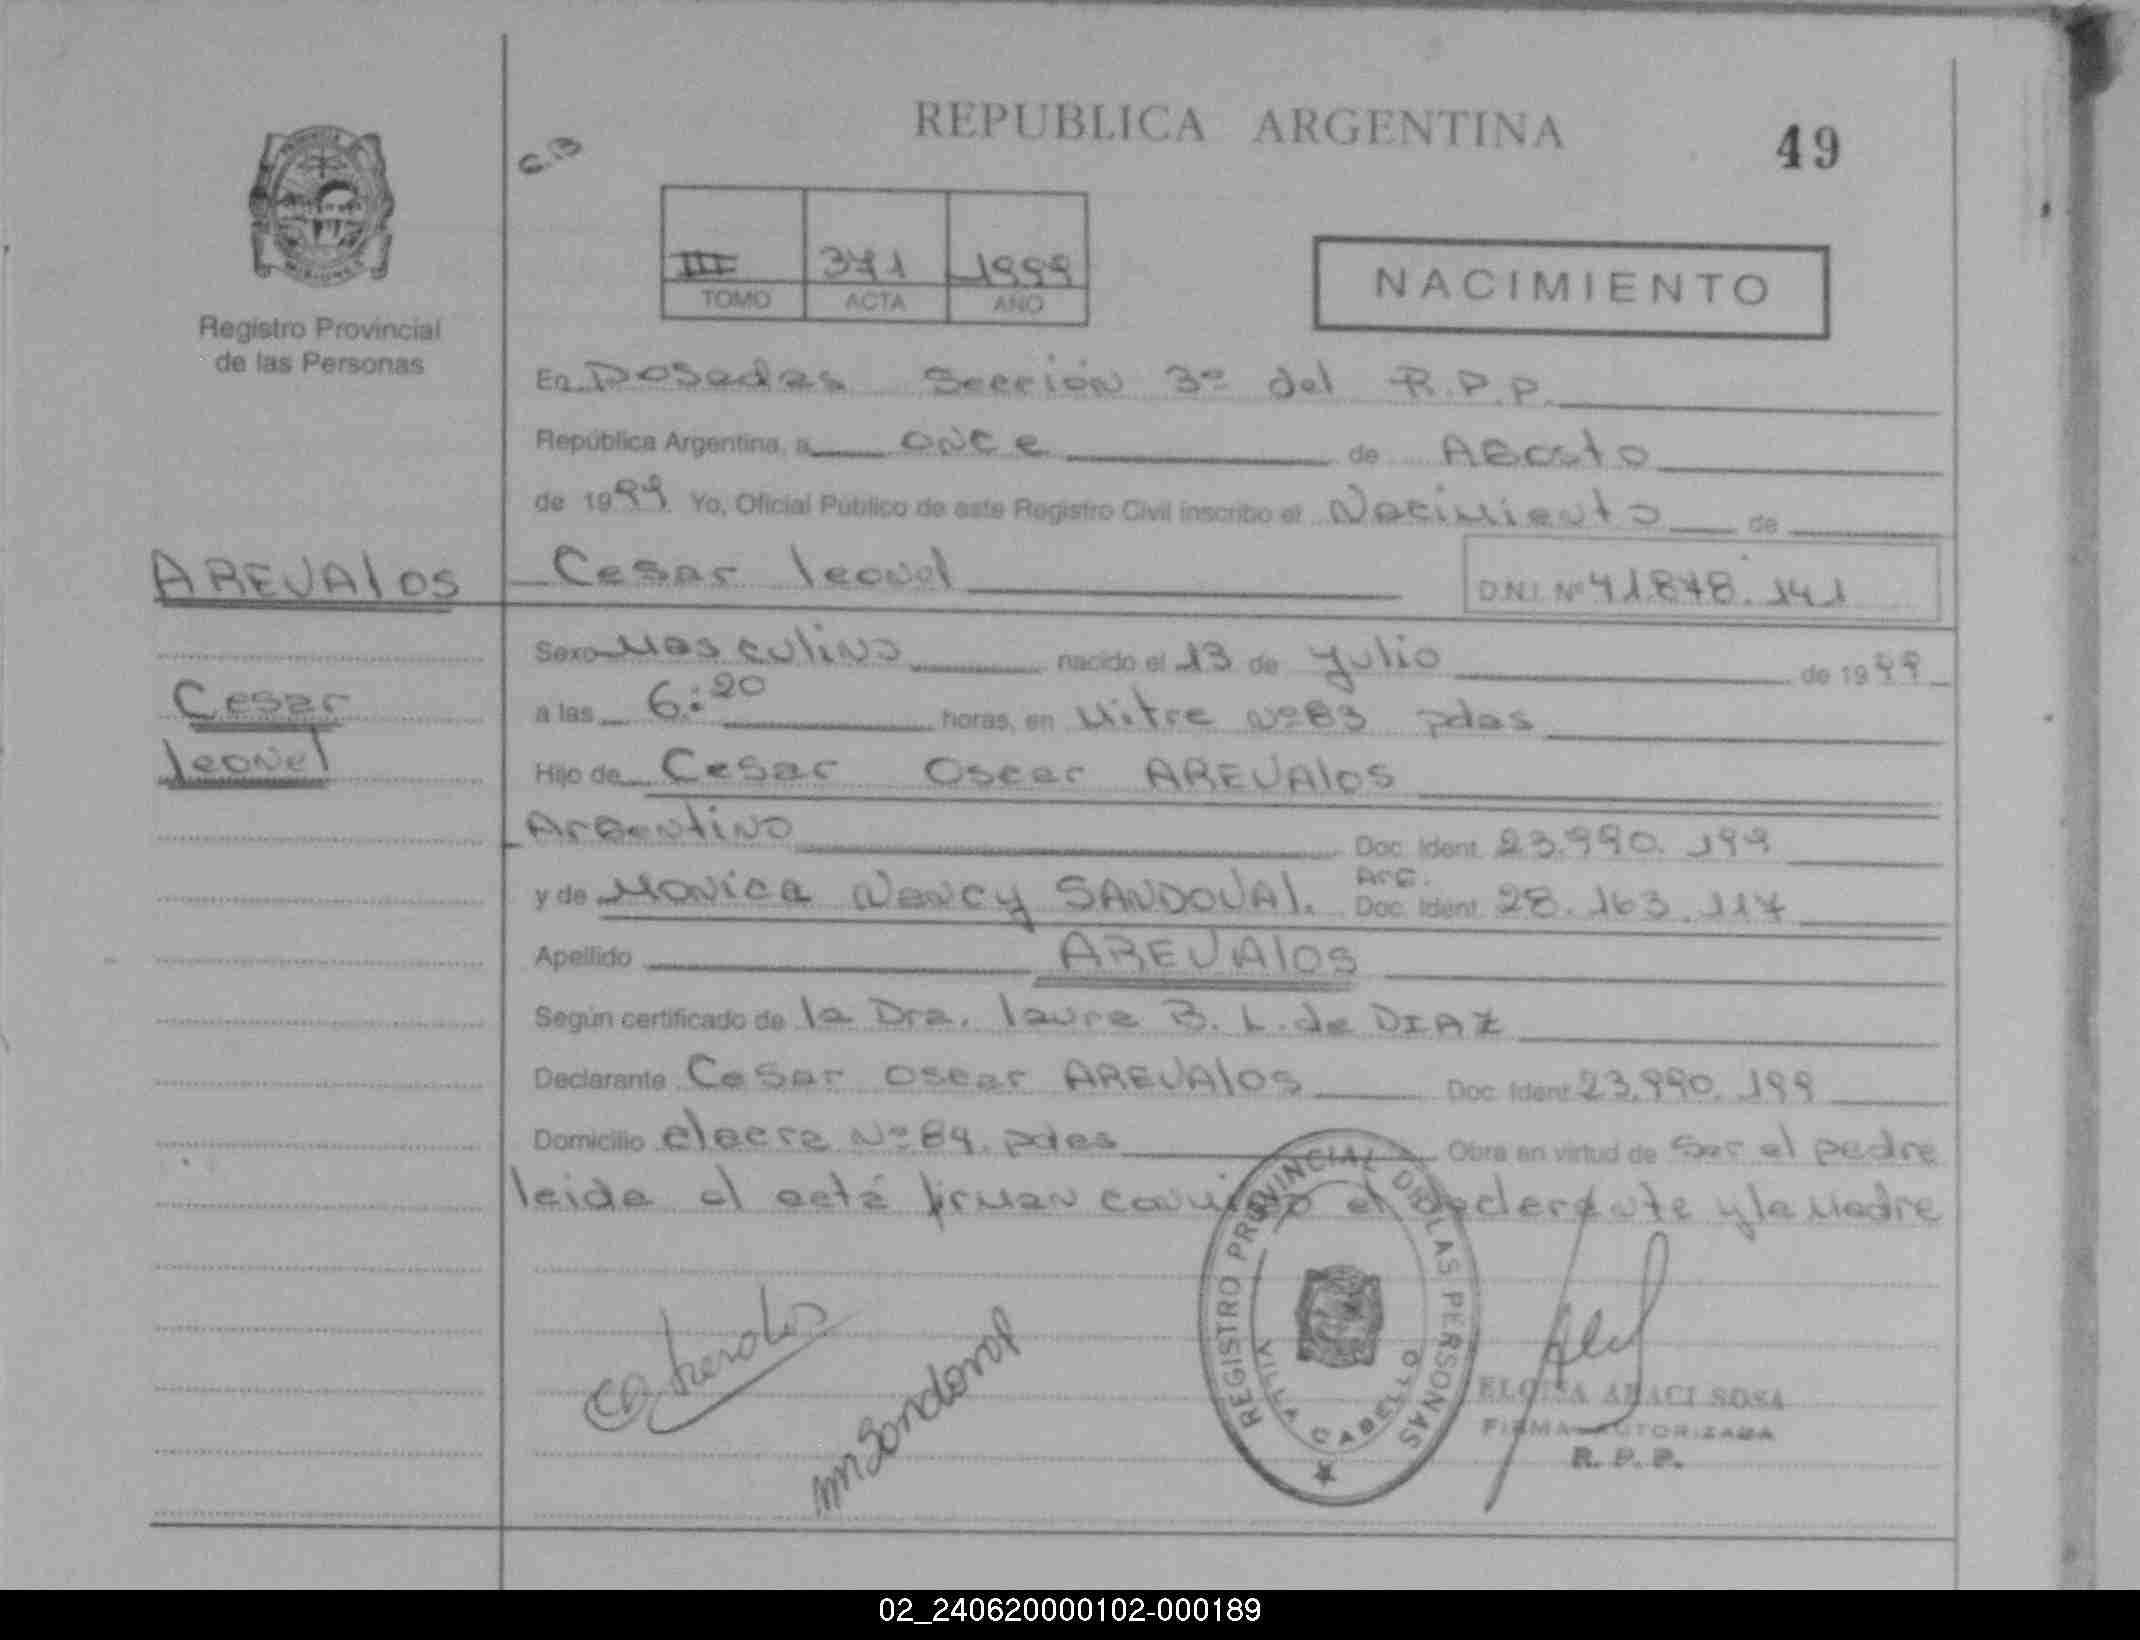 REPUBLICA ARGENTINA
49
III 371 1999
TOMO ACTA AÑO
NACIMIENTO
Registro Provincial
de las Personas
En Posadas Sección 3º del R.P.P.
República Argentina, a once de Agosto
de 1999 Yo, Oficial Público de este Registro Civil inscribo el Nacimiento de
AREVAlos Cesar leonel D.N.I. Nº 41.878.141
Sexo Masculino nacido el 13 de Julio de 1999
Cesar
a las 6:20 horas, en Mitre Nº 83 pdas
leonel
Hijo de Cesar Oscar AREVAlos
Argentino Doc. Ident. 23.990.199
Arg.
y de Monica Nancy SANDOVAl. Doc. Ident. 28.163.117
Apellido AREVAlos
Según certificado de la Dra. laura B. L. de DIAZ
Declarante Cesar Oscar AREVAlos Doc. Ident. 23.990.199
Domicilio Nº 84. pdas Obra en virtud de ser el padre
leida el acta firman conmigo el declarante y la Madre
REGISTRO PROVINCIAL DE LAS PERSONAS
VILLA CABELLO
M Sandoval
SOSA
FIRMA AUTORIZADA
R. P. P.
02_240620000102-000189